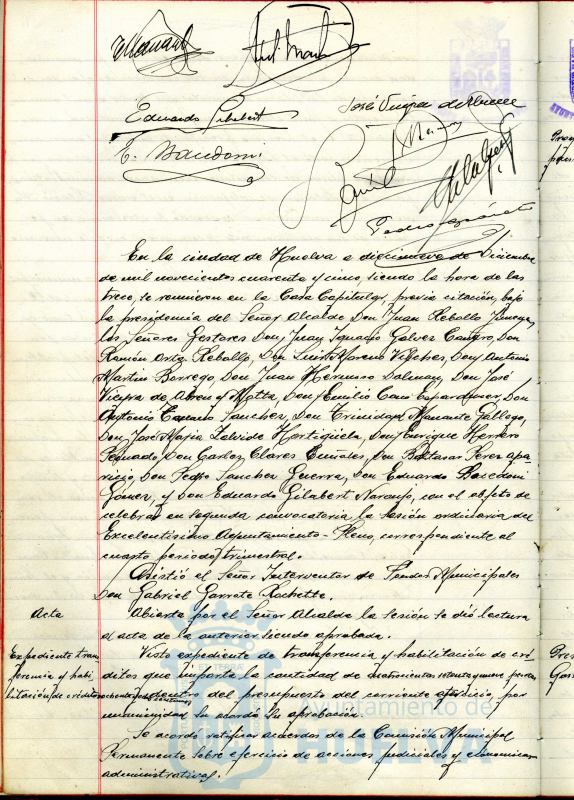 Eduardo Gilabert
José Vieyra de Abreu
E. Bacedoni
En la ciudad de Huelva a diecinueve de Diciembre
de mil novecientos cuarenta y cinco, siendo la hora de las
trece, se reunieron en la Casa Capitular, previa citación, bajo
la presidencia del Señor Alcalde Don Juan Rebollo
los Señores Gestores Don Juan Ignacio Galvez Don
Ramón Ortiz Rebollo, Don Luis Moreno Vilches, Don Antonio
Martin Borrego Don Juan Hermoso Don José
Vieyra de Abreu y Motta, Don Emilio Cano Don
Antonio Sanchez, Don Trinidad Gallego,
Don José Maria Don Enrique Herrero
Don Carlos Don Baltasar Perez Apa-
ricio, Don Pedro Sanchez Guerra, Don Eduardo Bacedoni
Gómez, y Don Eduardo Gilabert Naranjo, con el objeto de
celebrar en segunda convocatoria la sesión ordinaria del
Excelentísimo Ayuntamiento-Pleno, correspondiente al
cuarto periodo trimestral.
Asistió el Señor Interventor de Fondos Municipales
Don Gabriel Garrote
Acta
Abierta por el Señor Alcalde la sesión se dió lectura
al acta de la anterior siendo aprobada.
Expediente trans
ferencia y habi
litación de créditos
Visto expediente de transferencia y habilitación de cré-
ditos que importa la cantidad de
dentro del presupuesto del corriente ejercicio, por
unanimidad se acordó su aprobación.
Se acordó ratificar acuerdos de la Comisión Municipal
Permanente sobre ejercicio de acciones judiciales y económico
administrativas.
Ayuntamiento de
HUELVA